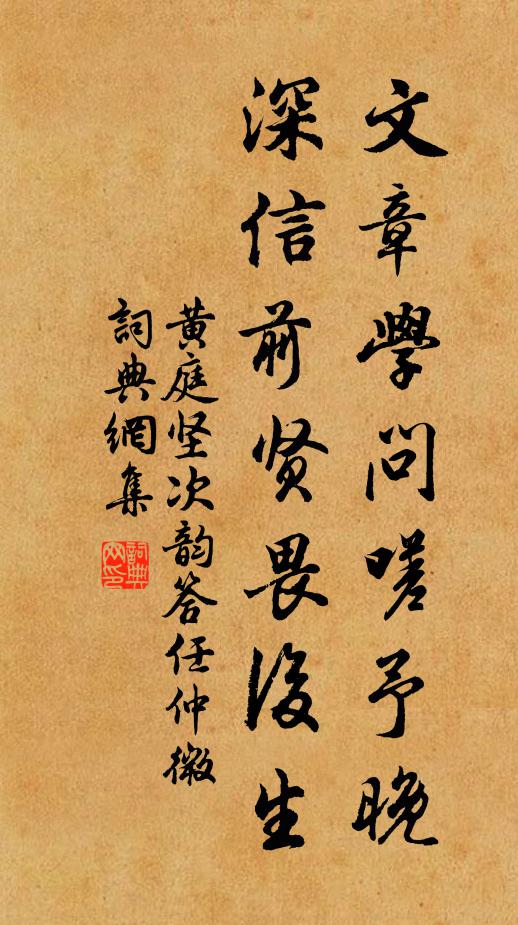 文章學問嗟予晚
深信前贤畏後生
黄庭坚次韵答任仲微
詞典網集
詞典网印